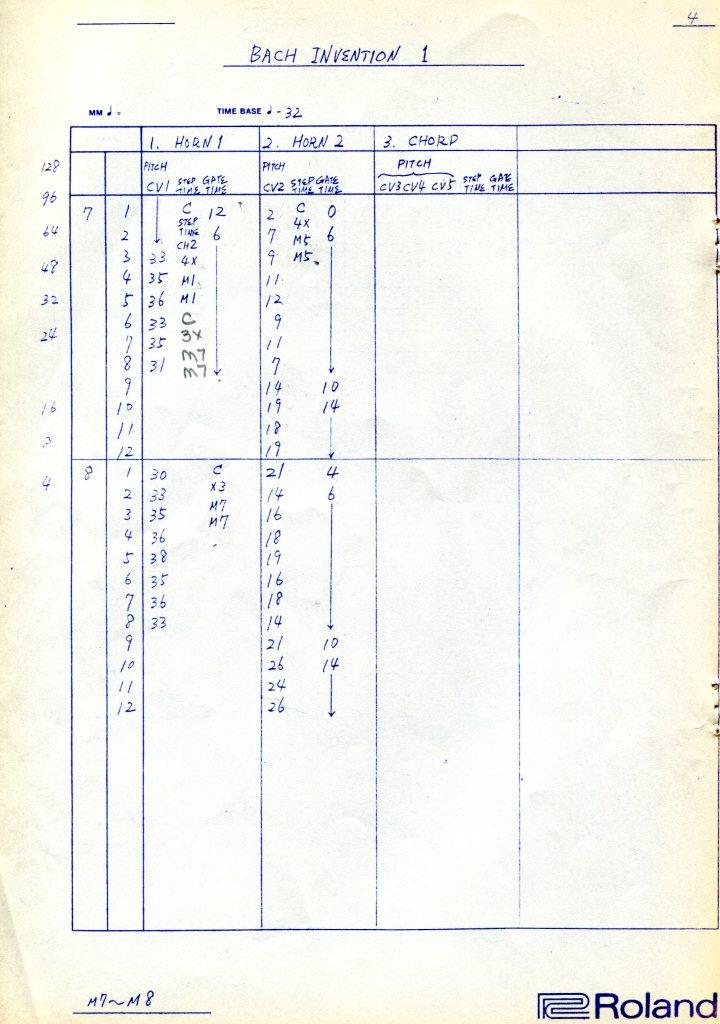 4
BACH INVENTION 1
MM ♩ =
TIME BASE ♩ - 32
1. HORN 1 2. HORN 2 3. CHORD
PITCH PITCH PITCH
CV1 STEP TIME GATE TIME CV2 STEP TIME GATE TIME CV3 CV4 CV5 STEP TIME GATE TIME
128
96
64
48
32
24
16
4
7 1 C 12 2 C 0
2 STEP TIME CH2 6 7 4X M5 6
3 33 4X 9 M5
4 35 M1 11
5 36 M1 12
6 33 C 9
7 35 3X 11
8 31 M7 M7 7
9 14 10
10 19 14
11 18
12 19
8 1 30 C 21 4
2 33 X3 14 6
3 35 M7 M7 16
4 36 18
5 38 19
6 35 16
7 36 18
8 33 14
9 21 10
10 26 14
11 24
12 26
M7~M8
Roland